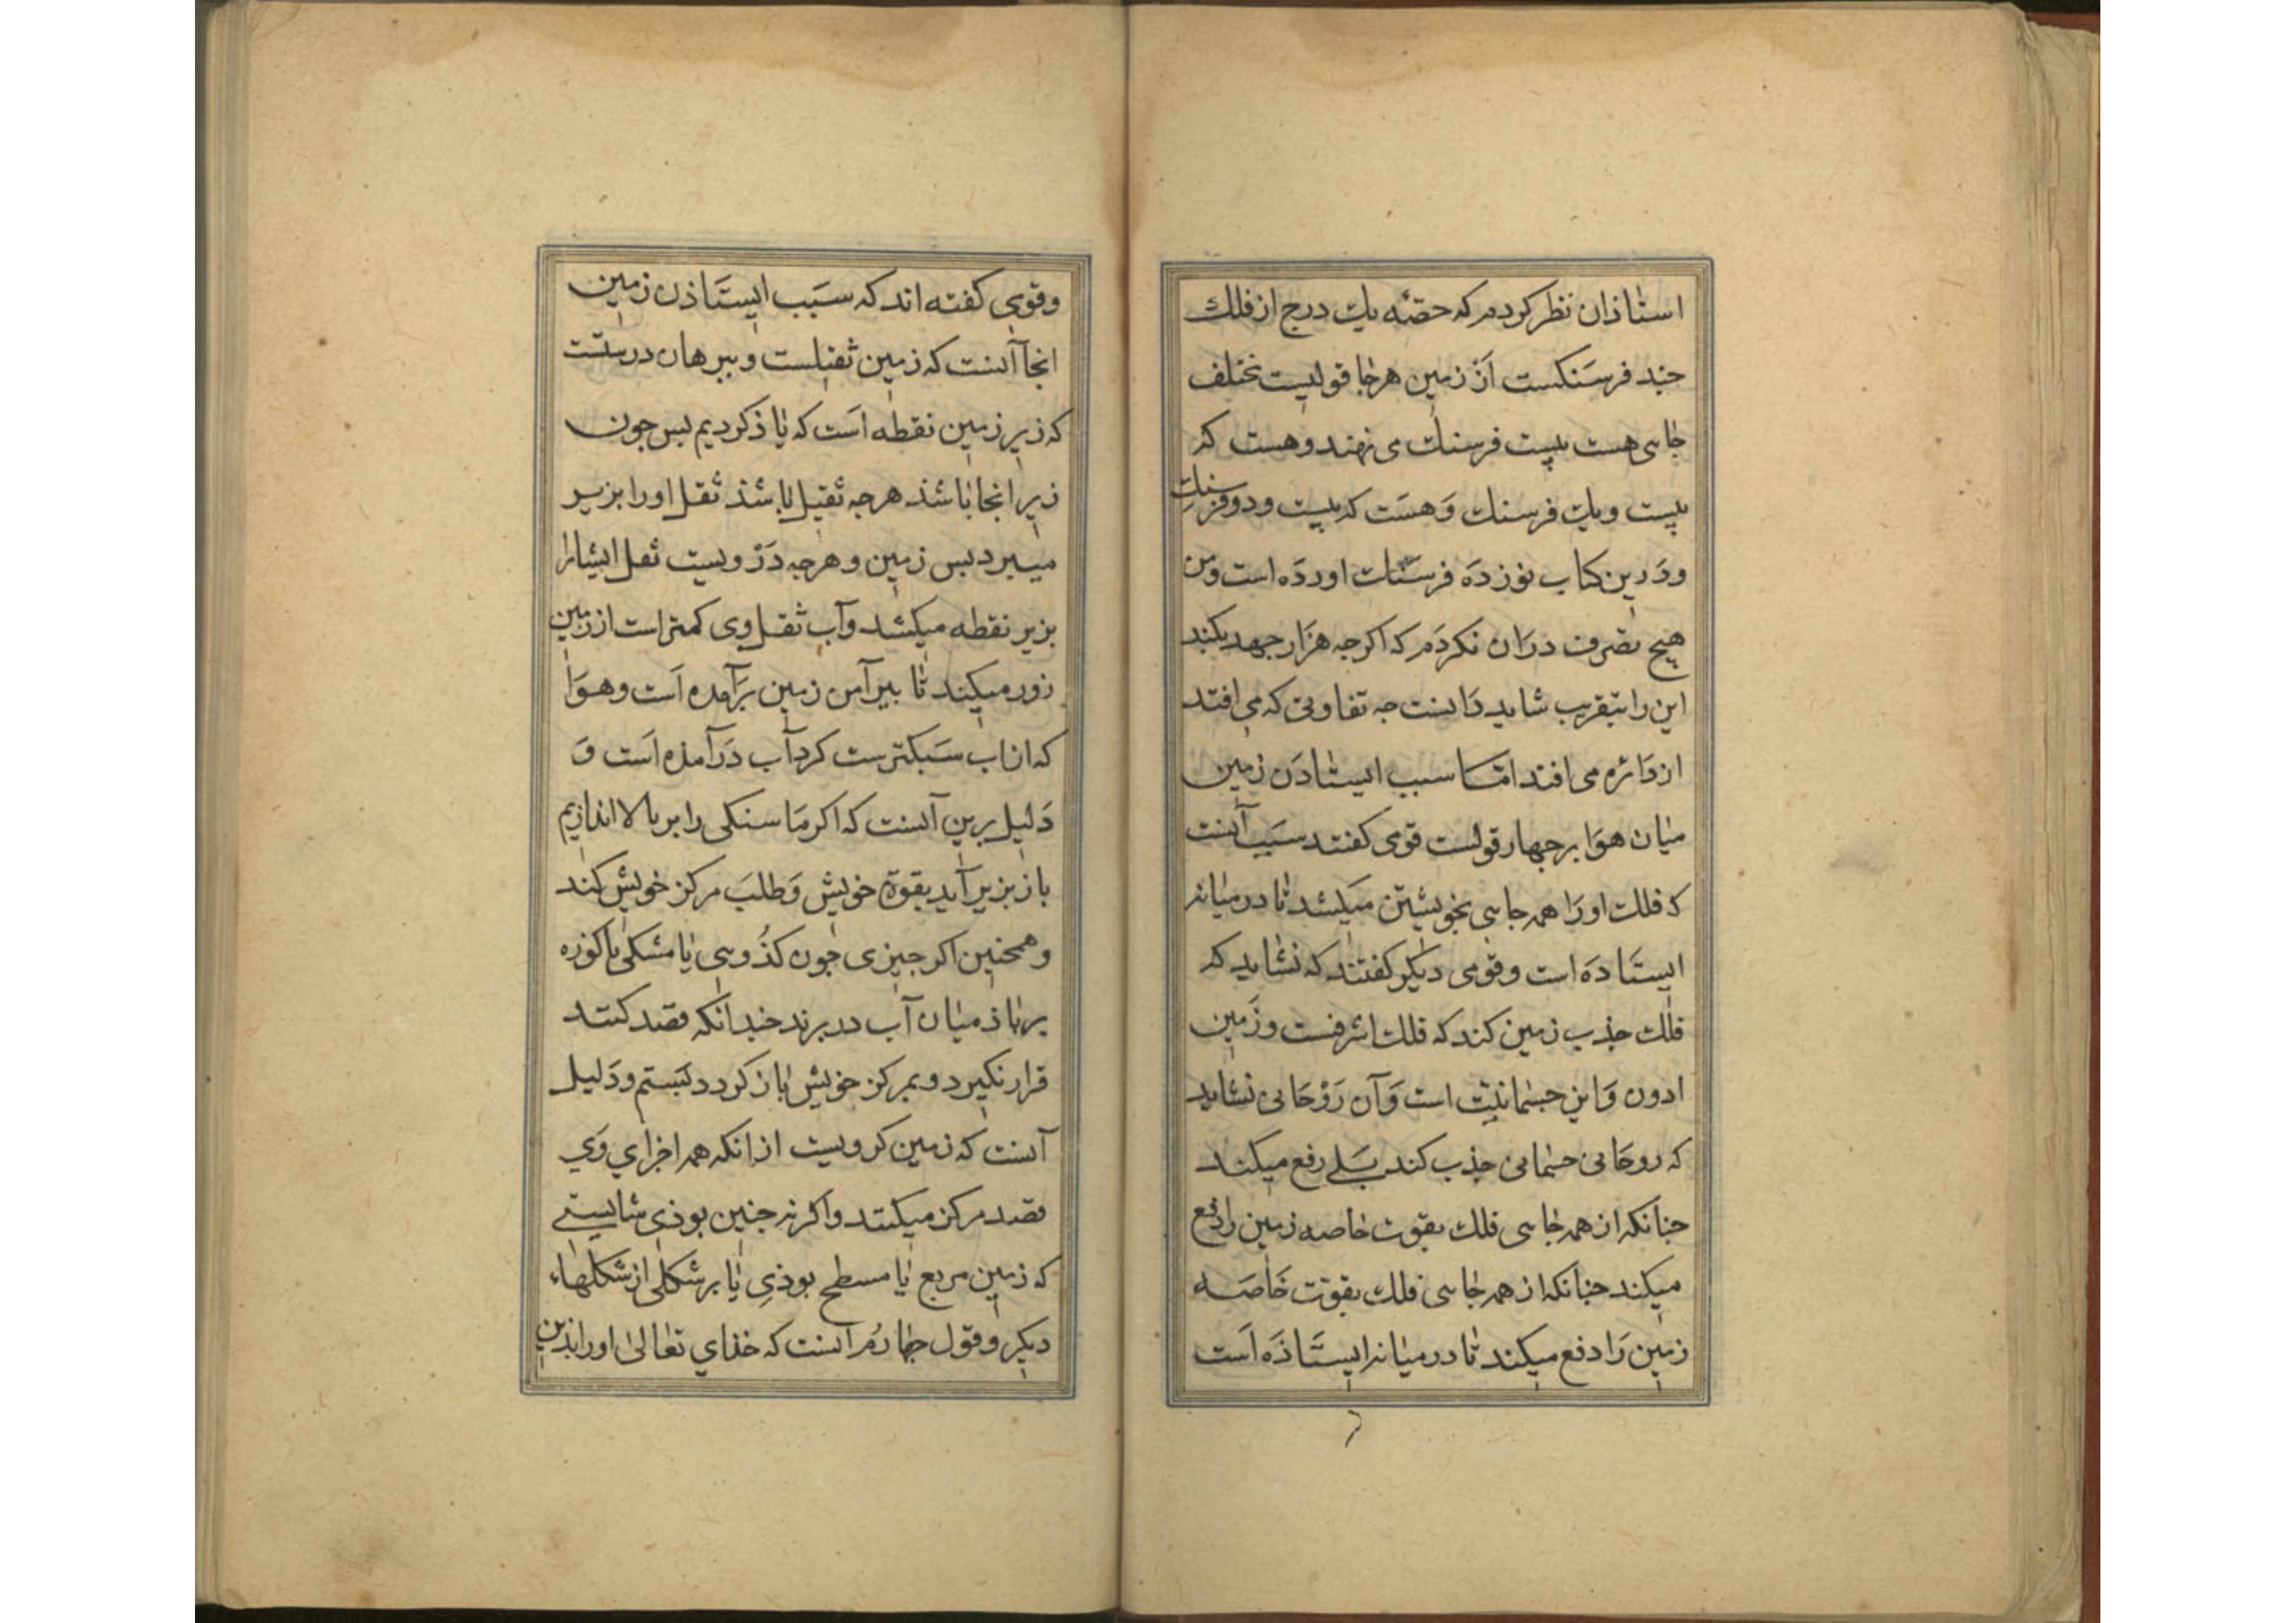 استاذان نظر کردم که حصّه یك درج از فلك
جند فرسنکست اَز زمین هرجا قولیست مختلف
جایی هست بیست فرسنك می نهند و هست که
بیست و یك فرسنك وَ هسَت که بیست و دو فرسنك
ودَرین کتاب نوزدَه فرسنك اوردَه است و من
هیچ تصرف درَان نکردَم که اکرجه هزَار جهد بکند
این را بتقریب شاید دَانست جه تفاوتی که می افتد
از دَائره می افتد امّا سبب ایستادَن زمین
میان هوَا برجهار قولست قومی کفتند سبَب آنست
که فلك اورَا همه جایی بخویشتن میکشد تا در میانه
ایستَادَه است و قومی دیکر کفتند که نشاید که
فلك جذب زمین کند که فلك اشرفست و زمین
ادون وَ این جسمانیّت است وَ آن رَوْحَانی نشاید
که روحَانی جسمانی جذب کند بَلی رفع میکند
جنانکه از همه جایی فلك بقوت خاصه زمین را دفع
میکند جنانکه از همه جایی فلك بقوّت خَاصَه
زمین رَا دفع میکند تا در میانه ایستَاذَه اَست
وقومی کفته اند که سبَب ایستَاذن زمین
انجا آنست که زمین ثقیلست و ببرهان درستست
که زیر زمین نقطه اَست که یاذ کردیم بس جون
زیر انجا باشذ هرجه ثقیل باشذ ثقل اورا بزیر
میبرد بس زمین و هرجه دَرْ ویست ثقل ایشانرا
بزیر نقطه میکشد و آب ثقل وی کمتر است از زمین
زور میکند تا بیرآمن زمین برَآمده اَست و هوَا
که از اب سَبکترست کرد آب دَرآمذه اَست وَ
دَلیل برین آنست که اکر مَا سنکی را بر بالا اندازیم
باز بزیر آید بقوة خویش وَ طلبَ مرکز خویش کند
و همجنین اکر جیزی جون کذُویی یا مشکی یا کوزه
بر باذ میان آب در برند جندانکه قصد کنند
قرار نکیرد و بمرکز خویش باز کردد بَستم و دَلیل
آنست که زمین کرویست از انکه همه اجزای وَی
قصد مرکز میکنند و اکر نه جنین بوذی شایستی
که زمین مربع یا مسطح بوذی یا بر شکلی از شکلهاء
دیکر و قول جهارُم آنست که خذای تعالی اورا بذین